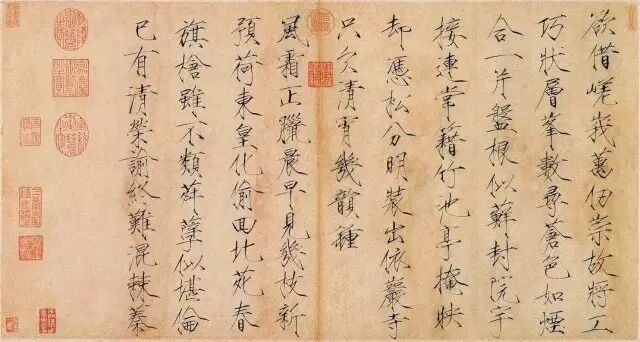 欲借嵯峨萬仞崇故將工
巧狀層峯數尋蒼色如煙
合一片盤根似蘚封院宇
接連常藉竹池亭掩映
却憑松分明裝出依巖寺
只欠清宵幾韻鍾
風霜正臘晨早見幾枝新
預荷東皇化偷回北苑春
旗槍雖不類似堪倫
已有清榮諭終難混棘蓁